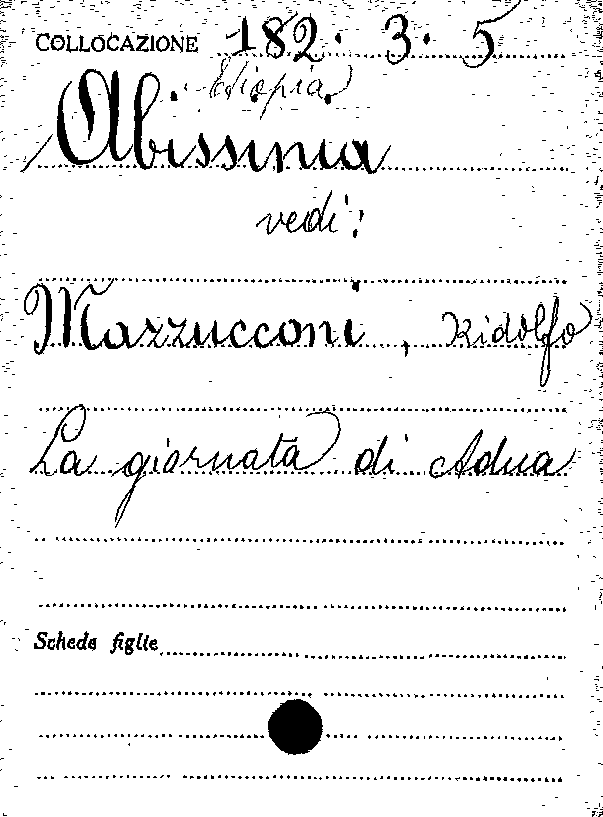 COLLOCAZIONE 182. 3. 5
Etiopia
Abissinia
vedi:
Mazzucconi, Ridolfo
La giornata di Adua
Schede figlie